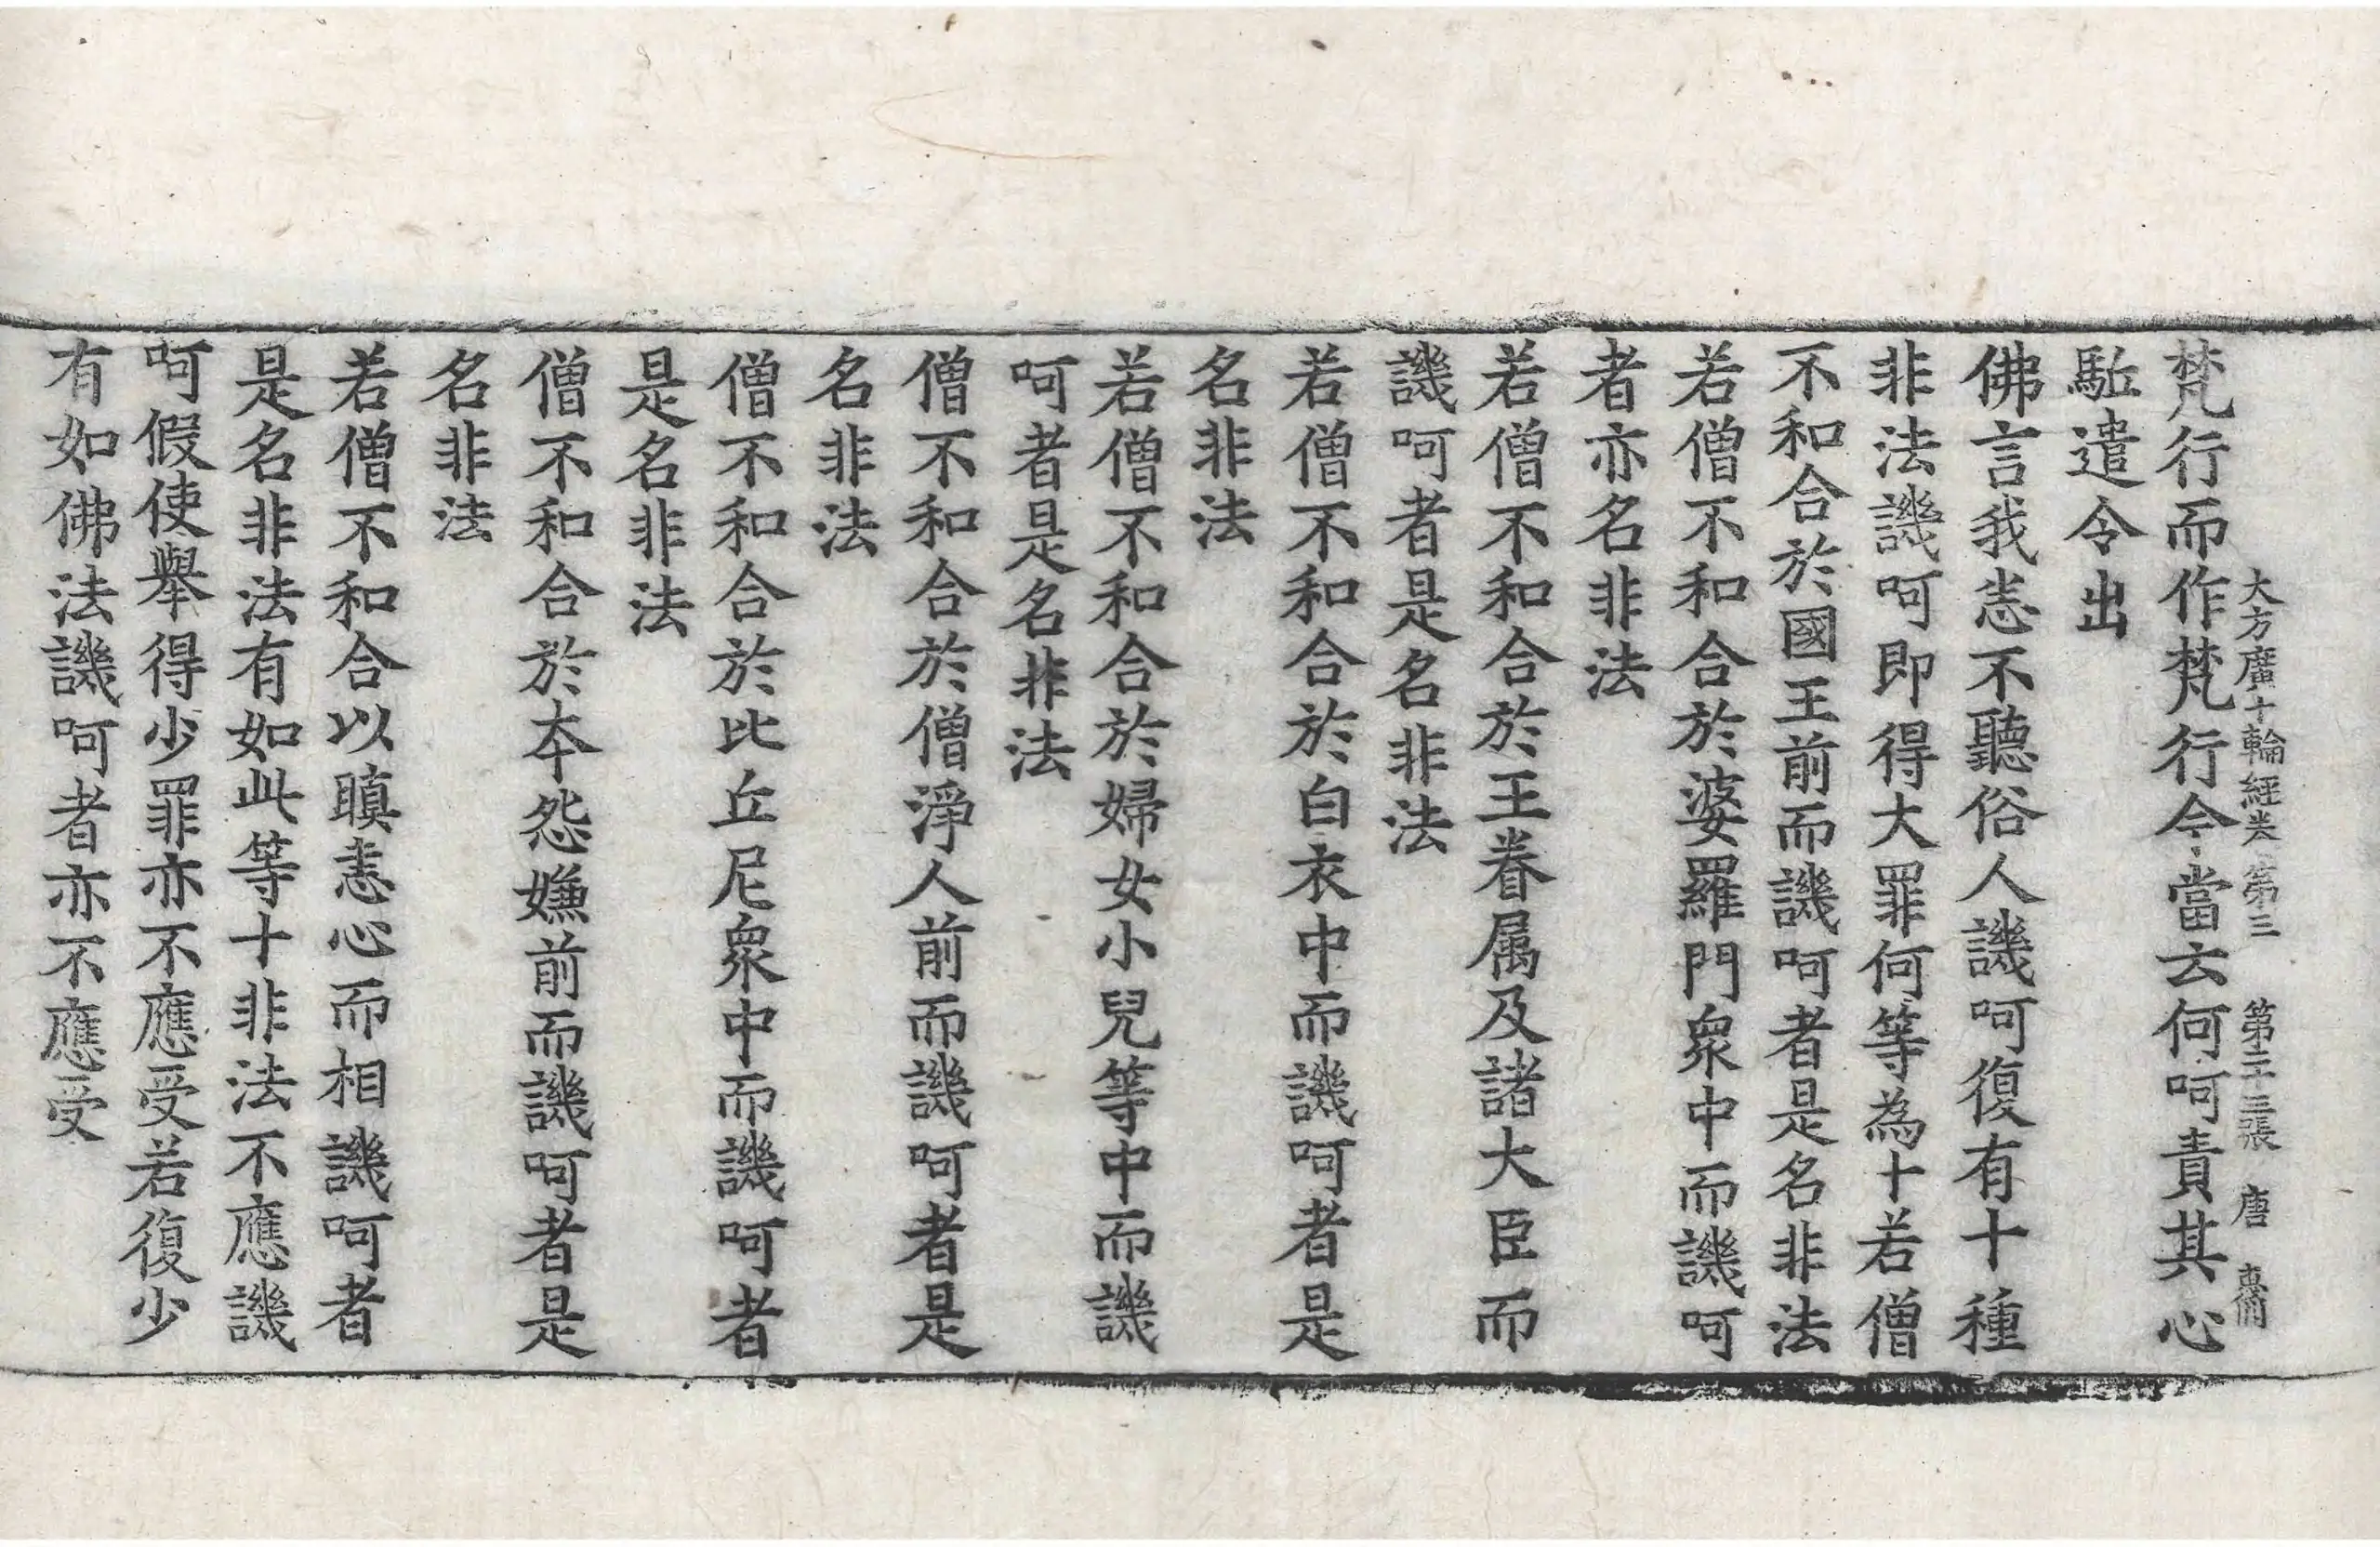 大方廣十輪經卷第三 第二十三張 唐
梵行而作梵行令當云何呵責其心
駈遣令出
佛言我恚不聽俗人譏呵復有十種
非法譏呵即得大罪何等為十若僧
不和合於國王前而譏呵者是名非法
若僧不和合於婆羅門衆中而譏呵
者亦名非法
若僧不和合於王眷属及諸大臣而
譏呵者是名非法
若僧不和合於白衣中而譏呵者是
名非法
若僧不和合於婦女小兒等中而譏
呵者是名非法
僧不和合於僧淨人前而譏呵者是
名非法
僧不和合於比丘尼衆中而譏呵者
是名非法
僧不和合於本怨嫌前而譏呵者是
名非法
若僧不和合以瞋恚心而相譏呵者
是名非法有如此等十非法不應譏
呵假使舉得少罪亦不應受若復少
有如佛法譏呵者亦不應受